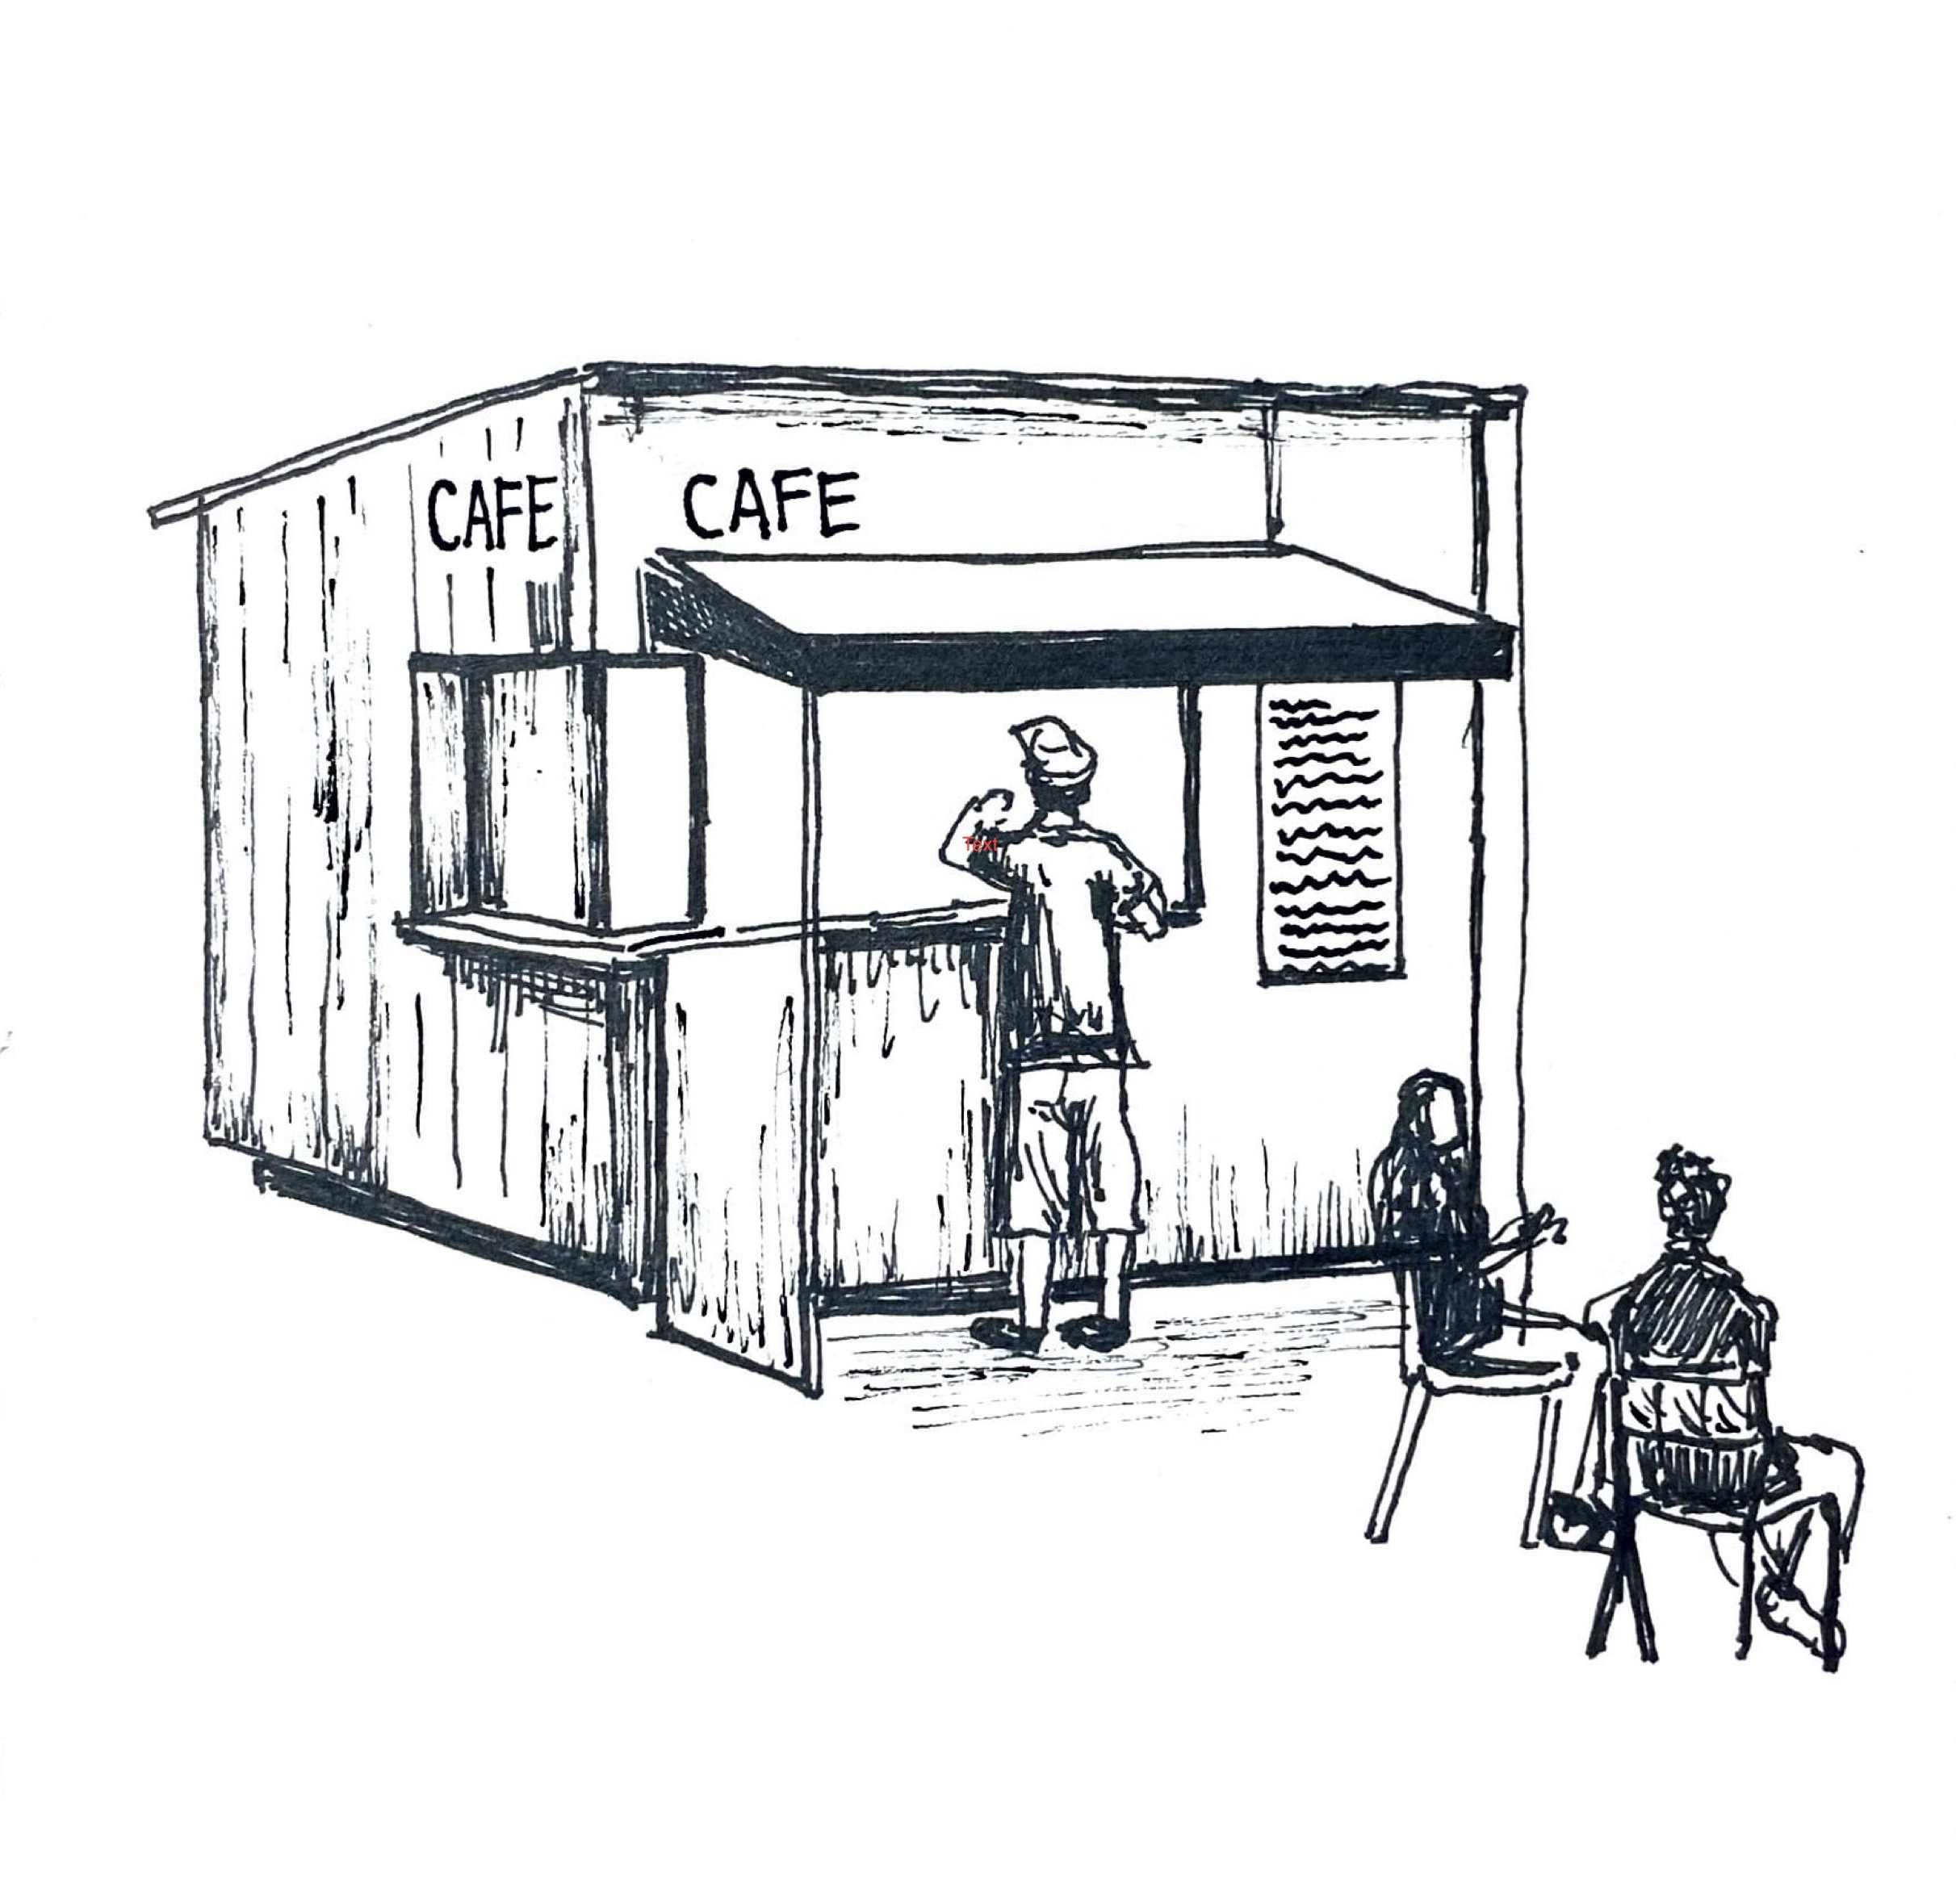 CAFE
CAFE
Text